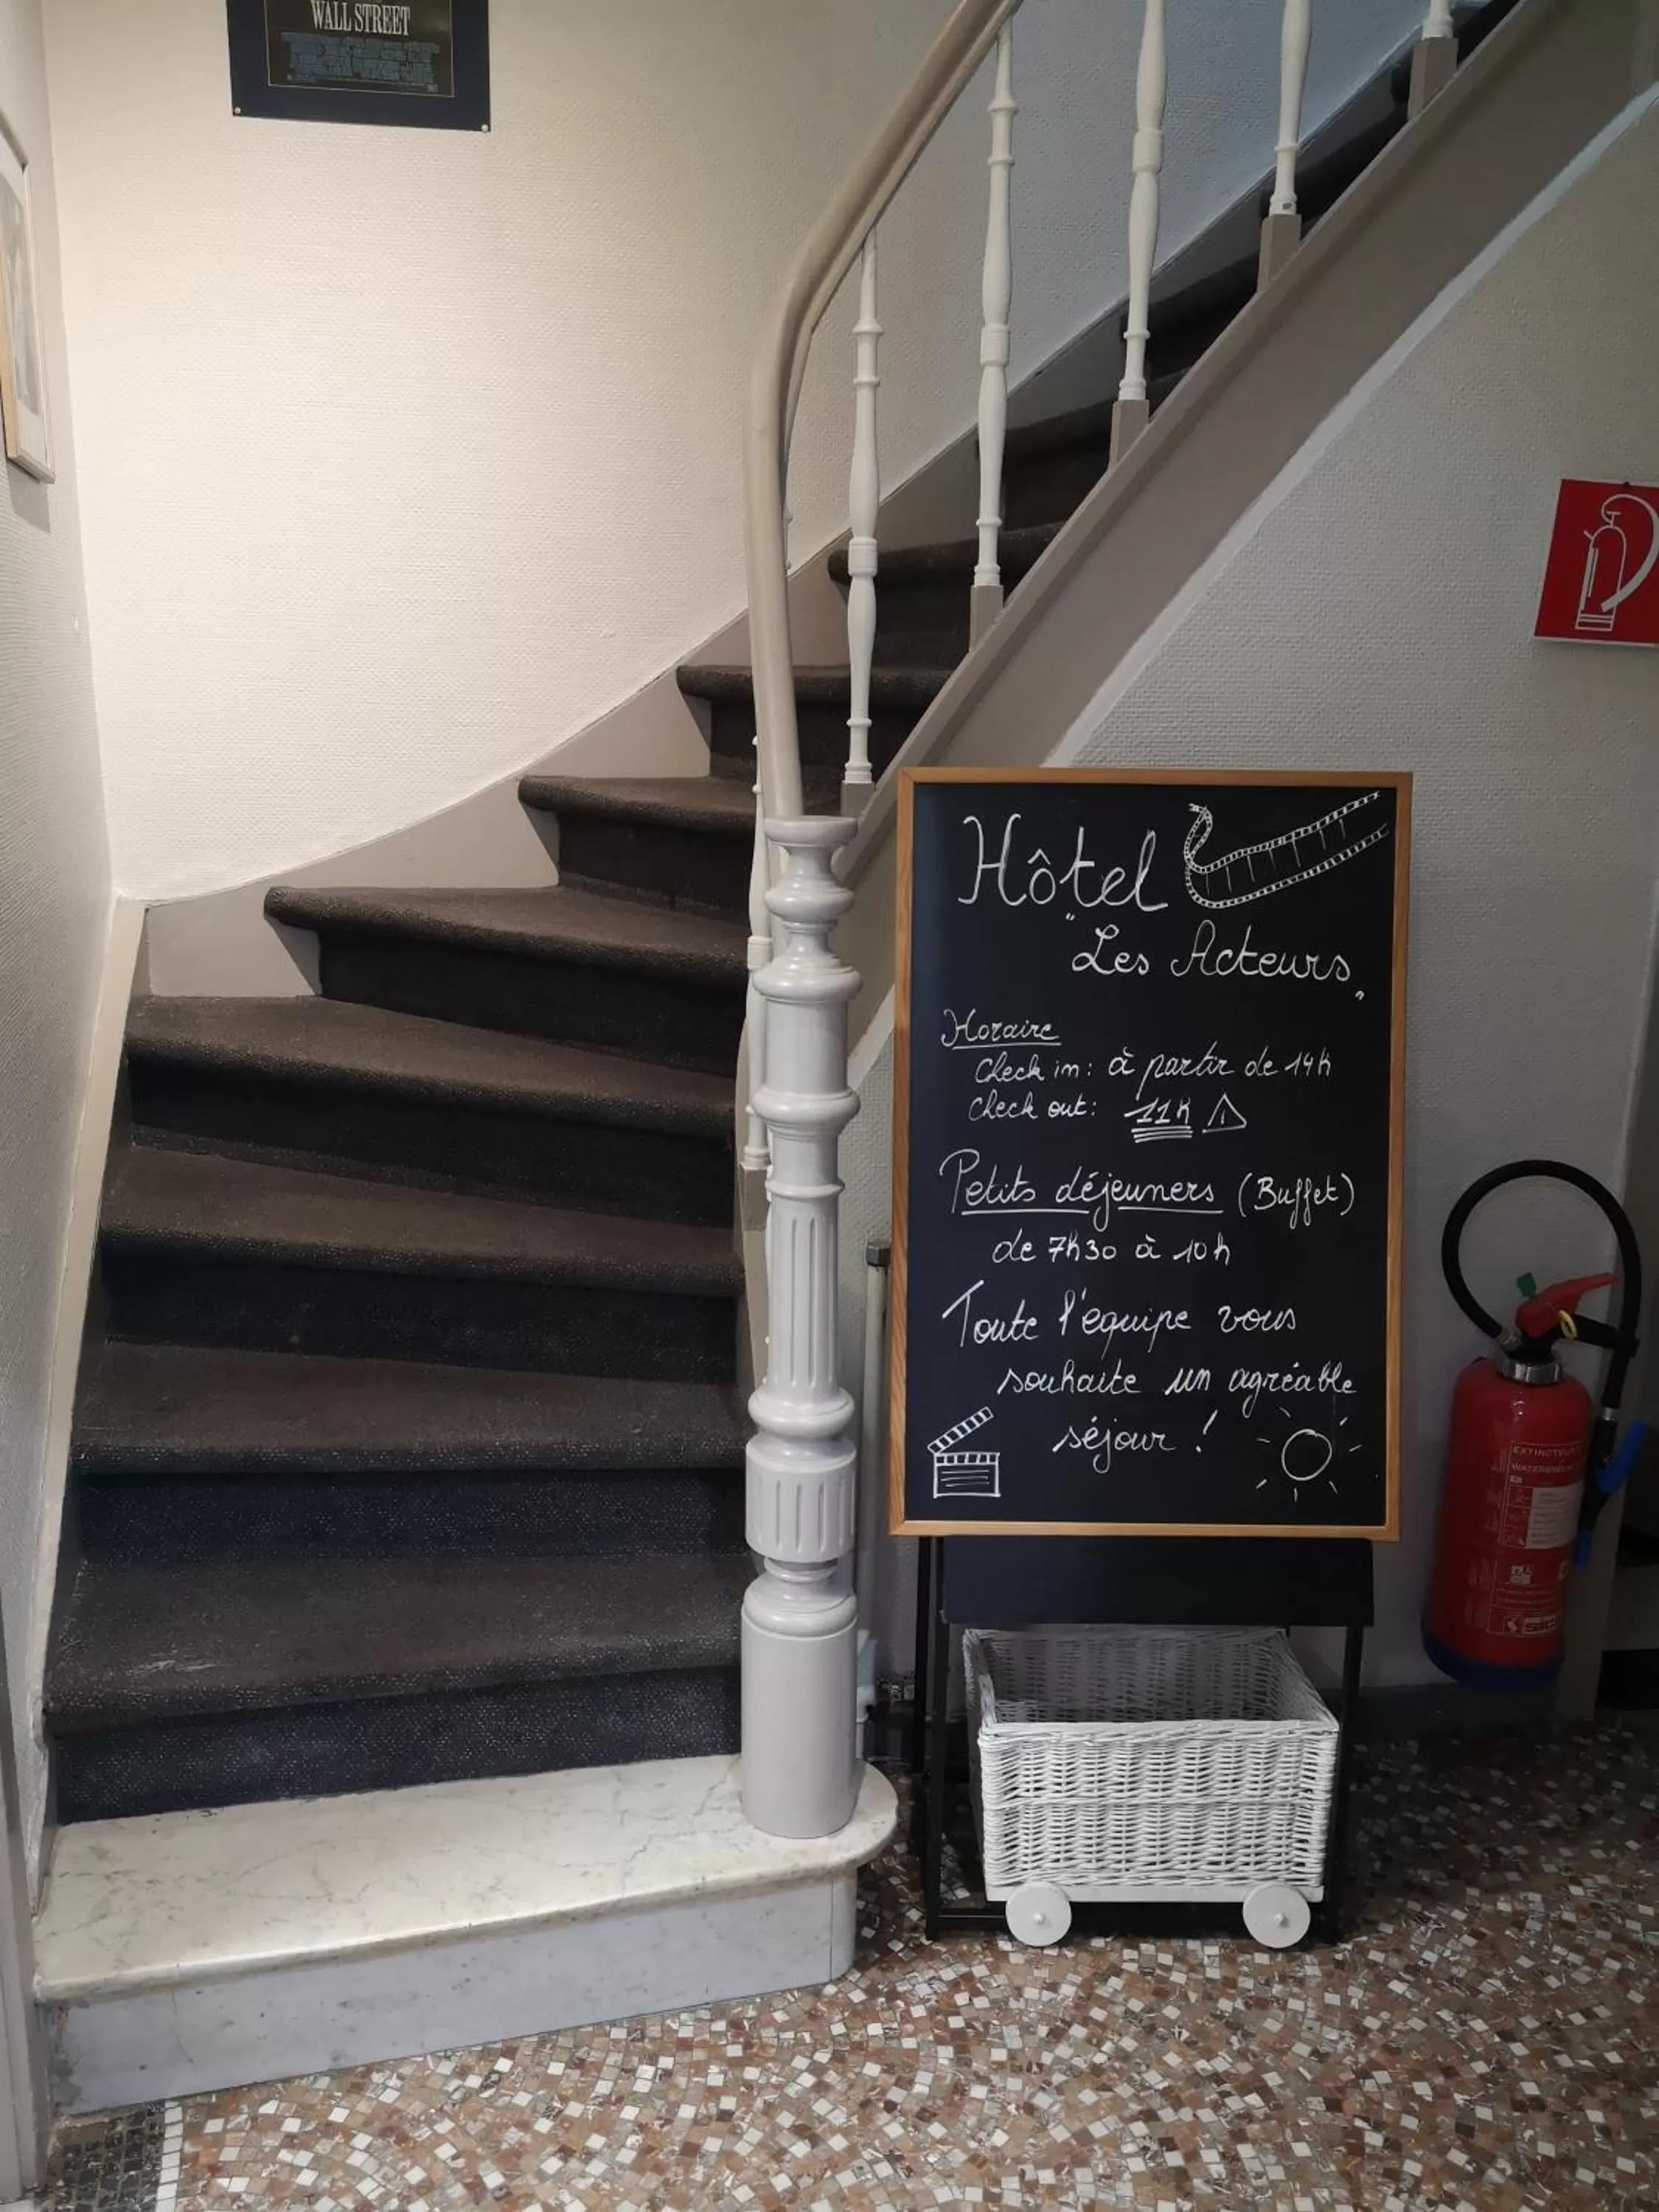 WALL STREET
Hôtel
"Les Acteurs"
Horaire
Check in: à partir de 14h
Check out: 11h
Petits déjeuners (Buffet)
de 7h30 à 10h
Toute l'équipe vous
souhaite un agréable
séjour !